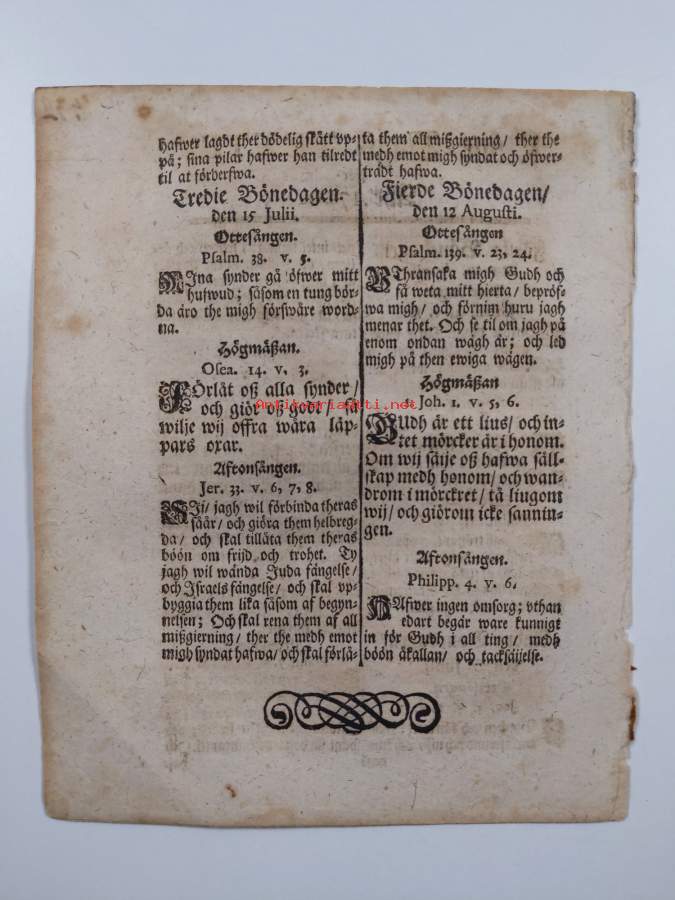 hafwer lagdt ther dödelig skått vp-
på; sina pilar hafwer han tilredt
til at förderfwa.
Tredie Bönedagen.
den 15 Julii.
Ottesången.
Psalm. 38. v. 5.
MIna synder gå öfwer mitt
hufwud; såsom en tung bör-
da äro the migh förswåre word-
na.
Högmäßan.
Osea. 14. v. 3.
FÖrlåt oß alla synder/
och giör oß godt/ så
wilje wij offra wåra läp-
pars oxar.
Aftonsången.
Jer. 33. v. 6, 7, 8.
SIj/ jagh wil förbinda theras
säår/ och giöra them helbreg-
da/ och skal tillåta them theras
böön om frijd och trohet. Ty
jagh wil wända Juda fängelse/
och Israels fängelse/ och skal vp-
byggia them lika såsom af begyn-
nelsen; Och skal rena them af all
mißgierning/ ther the medh emot
migh syndat hafwa/ och skal förlå-
ta them all mißgierning/ ther the
medh emot migh syndat och öfwer-
trädt hafwa.
Fierde Bönedagen/
den 12 Augusti.
Ottesången
Psalm. 139. v. 23, 24.
VThransaka migh Gudh och
få weta mitt hierta/ bepröf-
wa migh/ och förnim huru jagh
menar thet. Och se til om jagh på
enom ondan wägh är; och led
migh på then ewiga wägen.
Högmäßan
1 Joh. 1. v. 5, 6.
GUdh är ett lius/ och in-
tet mörcker är i honom.
Om wij säije oß hafwa säll-
skap medh honom/ och wan-
drom i mörckret/ tå liugom
wij/ och giörom icke sannin-
gen.
Aftonsången.
Philipp. 4. v. 6.
HAfwer ingen omsorg; vthan
edart begär ware kunnigt
in för Gudh i all ting/ medh
böön åkallan/ och tacksäijelse.